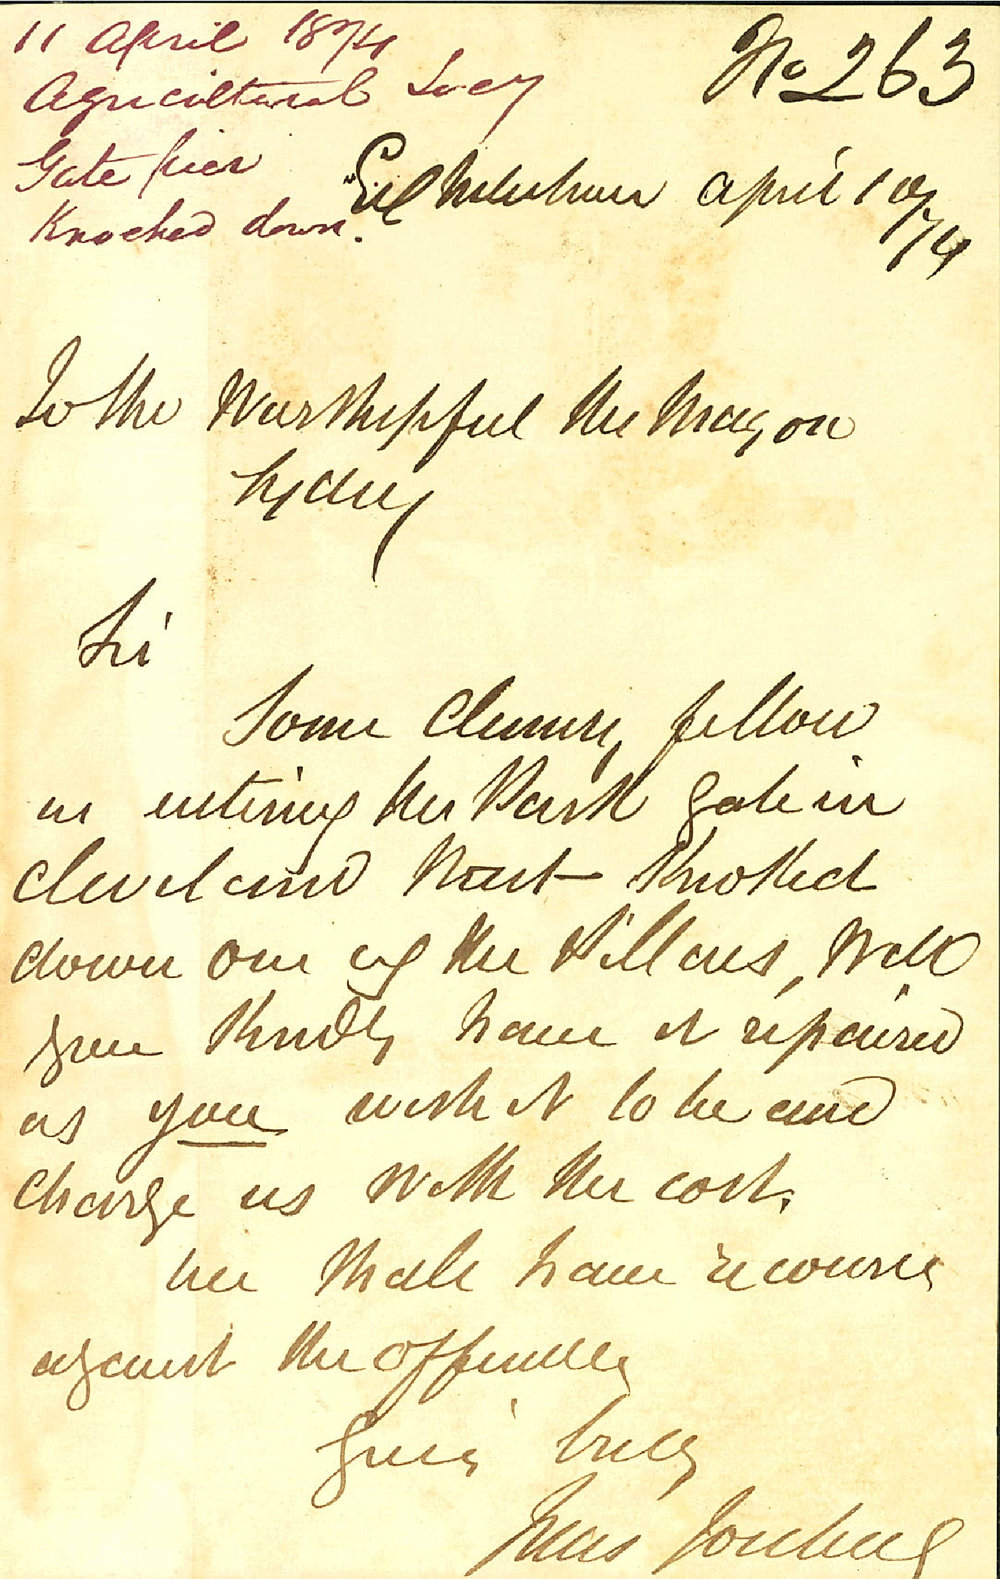 11 April 1874
Agricultural Socy
Gate pier
Knocked down.
No 263
Exl. Melbourne April 10
/74
To the Worshipful the Mayor
Sydney
Sir
Some Clumsy fellow
in entering the Park gate in
Cleveland Street knocked
down one of the Pillars, Will
you kindly have it repaired
as you wish it to be and
Charge us with the cost.
We shall have recourse
against the offender
Yours truly
Jules Joubert